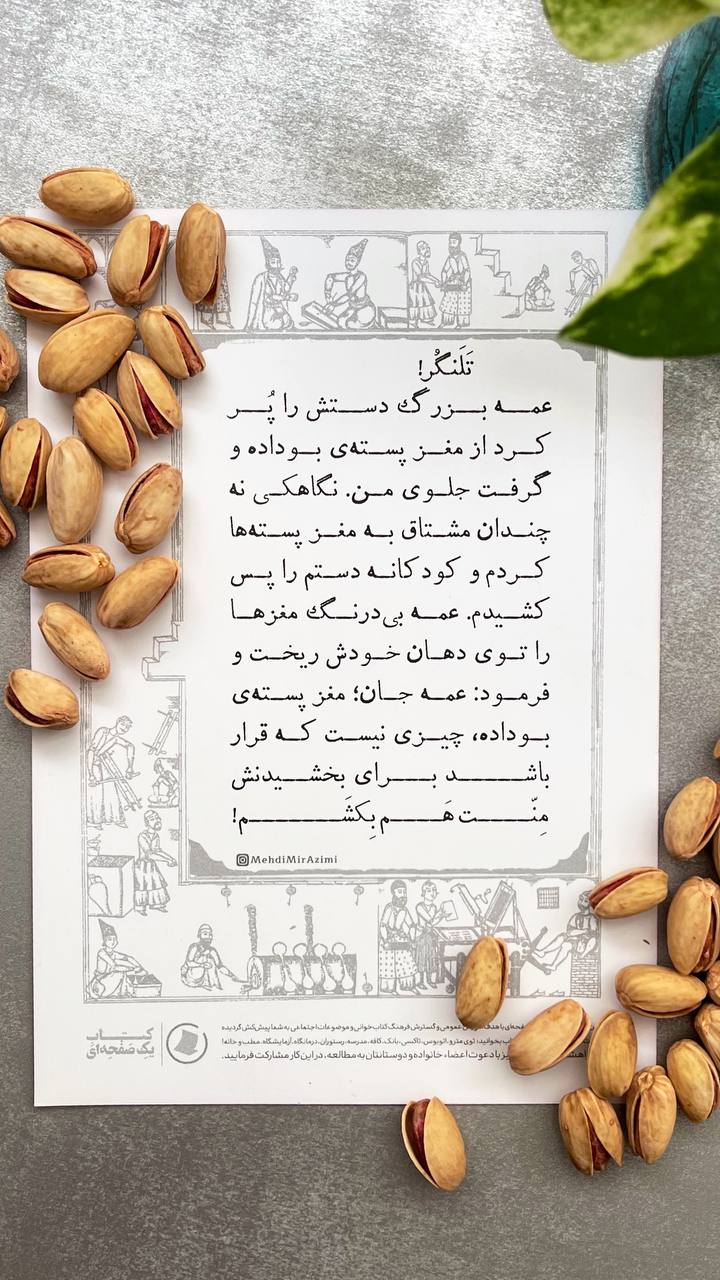 تَلَنگُر!
عمـه بـزرگ دستش را پُـر
کـرد از مغـز پسته‌ی بـوداده و
گرفت جلـوی مـن. نگاهکـی نه
چنـدان مشتاق بـه مغـز پستـه‌ها
کـردم و کودکانـه دستم را پـس
کشیدم. عمـه بی‌درنـگ مغزهـا
را تـوی دهـان خـودش ریخـت و
فرمـود: عمـه جـان؛ مغز پستـه‌ی
بـوداده، چیـزی نیسـت کـه قرار
باشـد بـرای بخشـیدنش
مِنّـت هَـم بِکشَـم!
@MehdiMirAzimi
کتاب
یک صَفحِه‌ای
عمومی و گسترش فرهنگ کتاب‌خوانی و موضوعات اجتماعی به شما پیش‌کش گردیده
بخوانید؛ توی مترو، اتوبوس، تاکسی، بانک، کافه، مدرسه، رستوران، درمانگاه، آزمایشگاه، مطب و خانه!
با دعوت اعضاء خانواده و دوستانتان به مطالعه، در این کار مشارکت فرمایید.